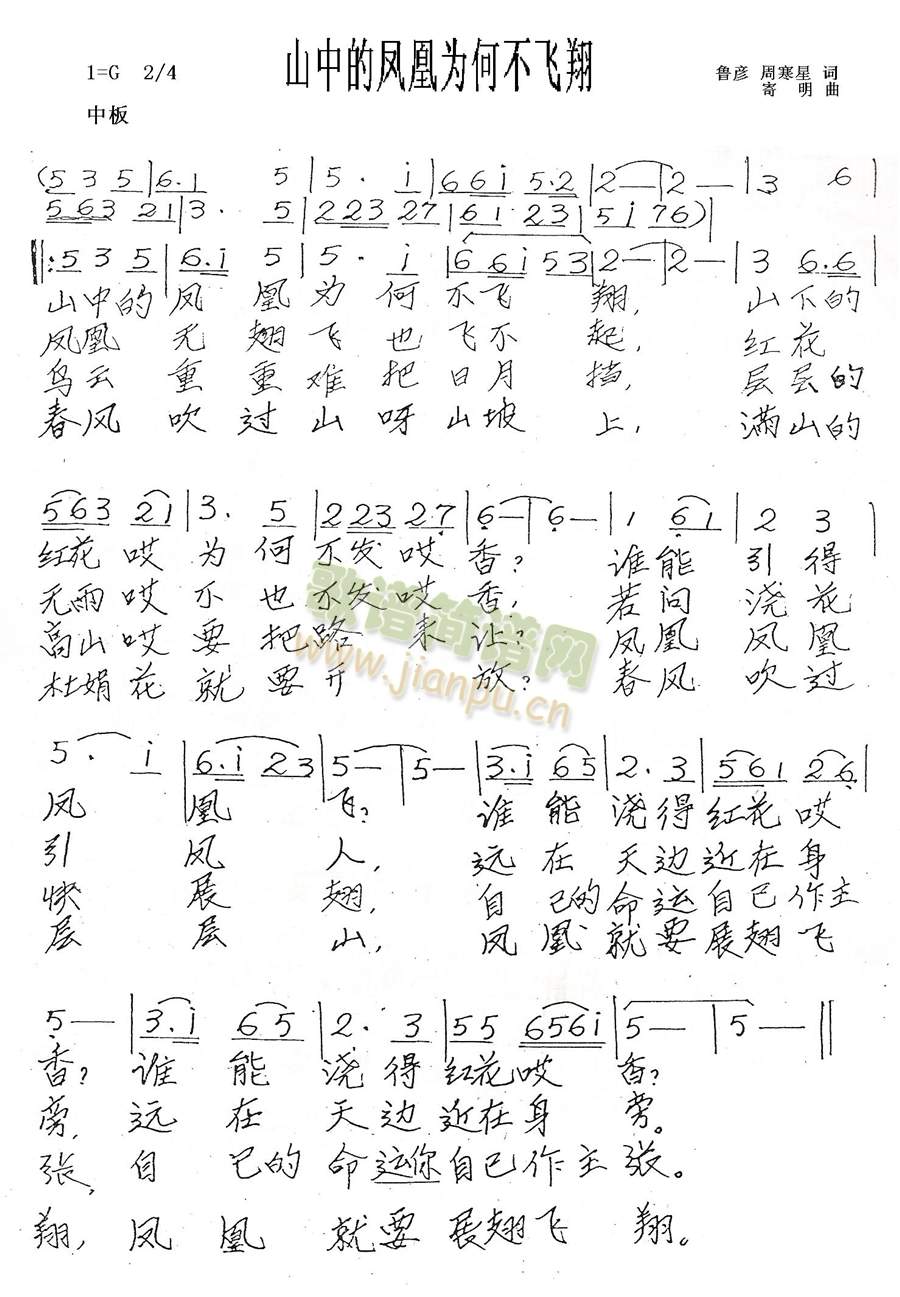 山中的凤凰为何不飞翔
1=G 2/4
鲁彦 周寒星 词
寄 明 曲
中板
(5 3 5 | 6.1 5 | 5. i | 6 6 i 5.2 | 2— | 2— | 3 6 |
5 6 3 2 1 | 3. 5 | 2 2 3 2 7 | 6 1 2 3 | 5 i 7 6) |
‖: 5 3 5 | 6.i 5 | 5. i | 6 6 i 5 3 | 2— | 2— | 3 6.6 |
山中的凤凰为何不飞翔,山下的
凤凰无翅飞也飞不起,红花
乌云重重难把日月挡,层层的
春风吹过山呀山坡上,满山的
5 6 3 2 1 | 3. 5 | 2 2 3 2 7 | 6— | 6— | 1 6 1 | 2 3 |
红花哎为何不发哎香?谁能引得
无雨哎不也不发哎香,若问浇花
高山哎要把路来让?凤凰凤凰
杜娟花就要开放?春风吹过
歌谱简谱网
www.jianpu.cn
5. i | 6.i 2 3 | 5— | 5— | 3.i 6 5 | 2. 3 | 5 6 1 2 6 |
凤凰飞?谁能浇得红花哎
引凤人,远在天边近在身
快展翅,自己的命运自己作主
层层山,凤凰就要展翅飞
5— | 3.i 6 5 | 2. 3 | 5 5 6 5 6 i | 5— | 5— ‖
香?谁能浇得红花哎香?
旁,远在天边近在身旁。
张,自己的命运你自己作主张。
翔,凤凰就要展翅飞翔。